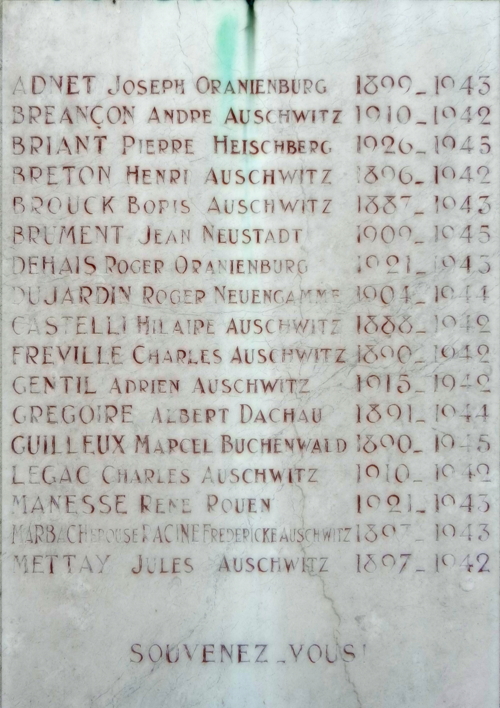 ADNET JOSEPH ORANIENBURG 1899_1943
BREANÇON ANDRE AUSCHWITZ 1910_1942
BRIANT PIERRE HEISCHBERG 1926_1945
BRETON HENRI AUSCHWITZ 1896_1942
BROUCK BORIS AUSCHWITZ 1887_1943
BRUMENT JEAN NEUSTADT 1909_1945
DEHAIS ROGER ORANIENBURG 1921_1943
DUJARDIN ROGER NEUENGAMME 1904_1944
CASTELLI HILAIRE AUSCHWITZ 1888_1942
FREVILLE CHARLES AUSCHWITZ 1890_1942
GENTIL ADRIEN AUSCHWITZ 1915_1942
GREGOIRE ALBERT DACHAU 1891_1944
GUILLEUX MARCEL BUCHENWALD 1890_1945
LEGAC CHARLES AUSCHWITZ 1910_1942
MANESSE RENE ROUEN 1921_1943
MARBACH EPOUSE RACINE FREDERICKE AUSCHWITZ 1897_1943
METTAY JULES AUSCHWITZ 1897_1942
SOUVENEZ_VOUS!